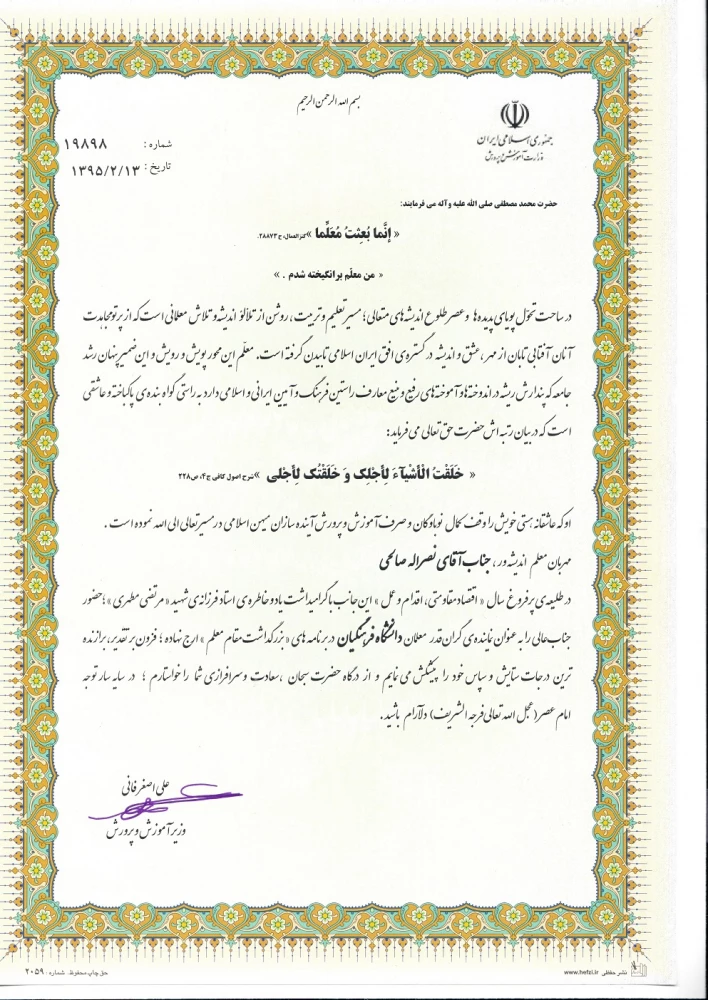 بسم الله الرحمن الرحیم
جمهوری اسلامی ایران
وزارت آموزش و پرورش
شماره : ۱۹۸۹۸
تاریخ : ۱۳۹۵/۲/۱۳
حضرت محمد مصطفی صلی الله علیه و آله می فرمایند:
« إنَّما بُعِثتُ مُعَلِّما » کنزالعمال، ح ۲۸۸۷۳.
« من معلّم برانگیخته شدم . »
در ساحت تحوّل پویای پدیده ها و عصر طلوع اندیشه های متعالی؛ مسیر تعلیم و تربیت، روشن از تلألؤ اندیشه و تلاش معلمانی است که از پرتو مجاهدت
آنان آفتابی تابان از مهر، عشق و اندیشه در گستره ی افق ایران اسلامی تابیدن گرفته است. معلّم این محور پویش و رویش و این ضمیر پنهان رشد
جامعه که پندارش ریشه در اندوخته ها و آموخته های رفیع و منیع معارف راستین فرهنگ و آیین ایرانی و اسلامی دارد به راستی گواه بنده ی پاکباخته و عاشقی
است که در بیان رتبه اش حضرت حق تعالی می فرماید:
« خَلَقْتُ الْأَشْیآءَ لِأَجْلِکَ وَ خَلَقْتُکَ لِأَجْلی » شرح اصول کافی ج۴، ص ۲۲۸
او که عاشقانه هستی خویش را وقف کمال نوباوگان و صرف آموزش و پرورش آینده سازان میهن اسلامی در مسیر تعالی الی الله نموده است .
مهربان معلم اندیشه ور ، جناب آقای نصراله صالحی
در طلیعه ی پر فروغ سال « اقتصاد مقاومتی، اقدام و عمل » این جانب با گرامیداشت یاد و خاطره ی استاد فرزانه ی شهید « مرتضی مطهری »؛ حضور
جناب عالی را به عنوان نماینده ی گران قدر معلمان دانشگاه فرهنگیان در برنامه های « بزرگداشت مقام معلم » ارج نهاده ؛ فزون بر تقدیر، برازنده
ترین درجات ستایش و سپاس خود را پیشکش می نمایم و از درگاه حضرت سبحان ، سعادت و سرافرازی شما را خواستارم ؛ در سایه سار توجه
امام عصر(عجل الله تعالی فرجه الشریف) دلآرام باشید.
علی اصغر فانی
وزیر آموزش و پرورش
نشر حفظی www.hefzi.ir
حق چاپ محفوظ. شماره : ۲۰۵۹